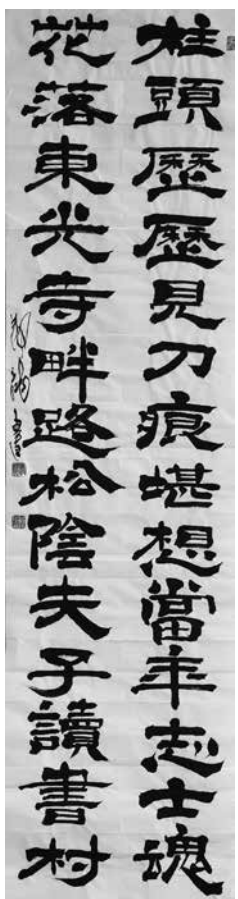 柱頭歷歷見刀痕堪想當年志士魂
花落東光寺畔路松陰夫子讀書村